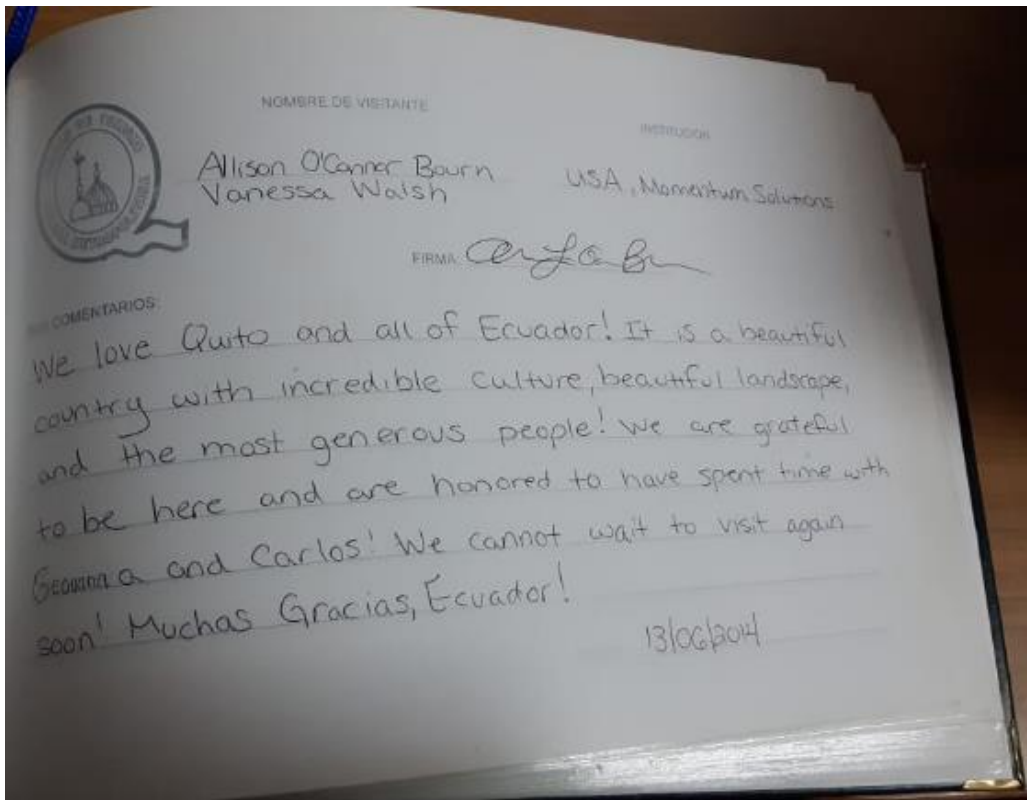 NOMBRE DE VISITANTE
INSTITUCION
Allison O'Connor Bourn
Vanessa Walsh
USA, Momentum Solutions
FIRMA
COMENTARIOS:
We love Quito and all of Ecuador! It is a beautiful
country with incredible culture, beautiful landscape,
and the most generous people! We are grateful
to be here and are honored to have spent time with
and Carlos! We cannot wait to visit again
soon! Muchas Gracias, Ecuador!
13/06/2014